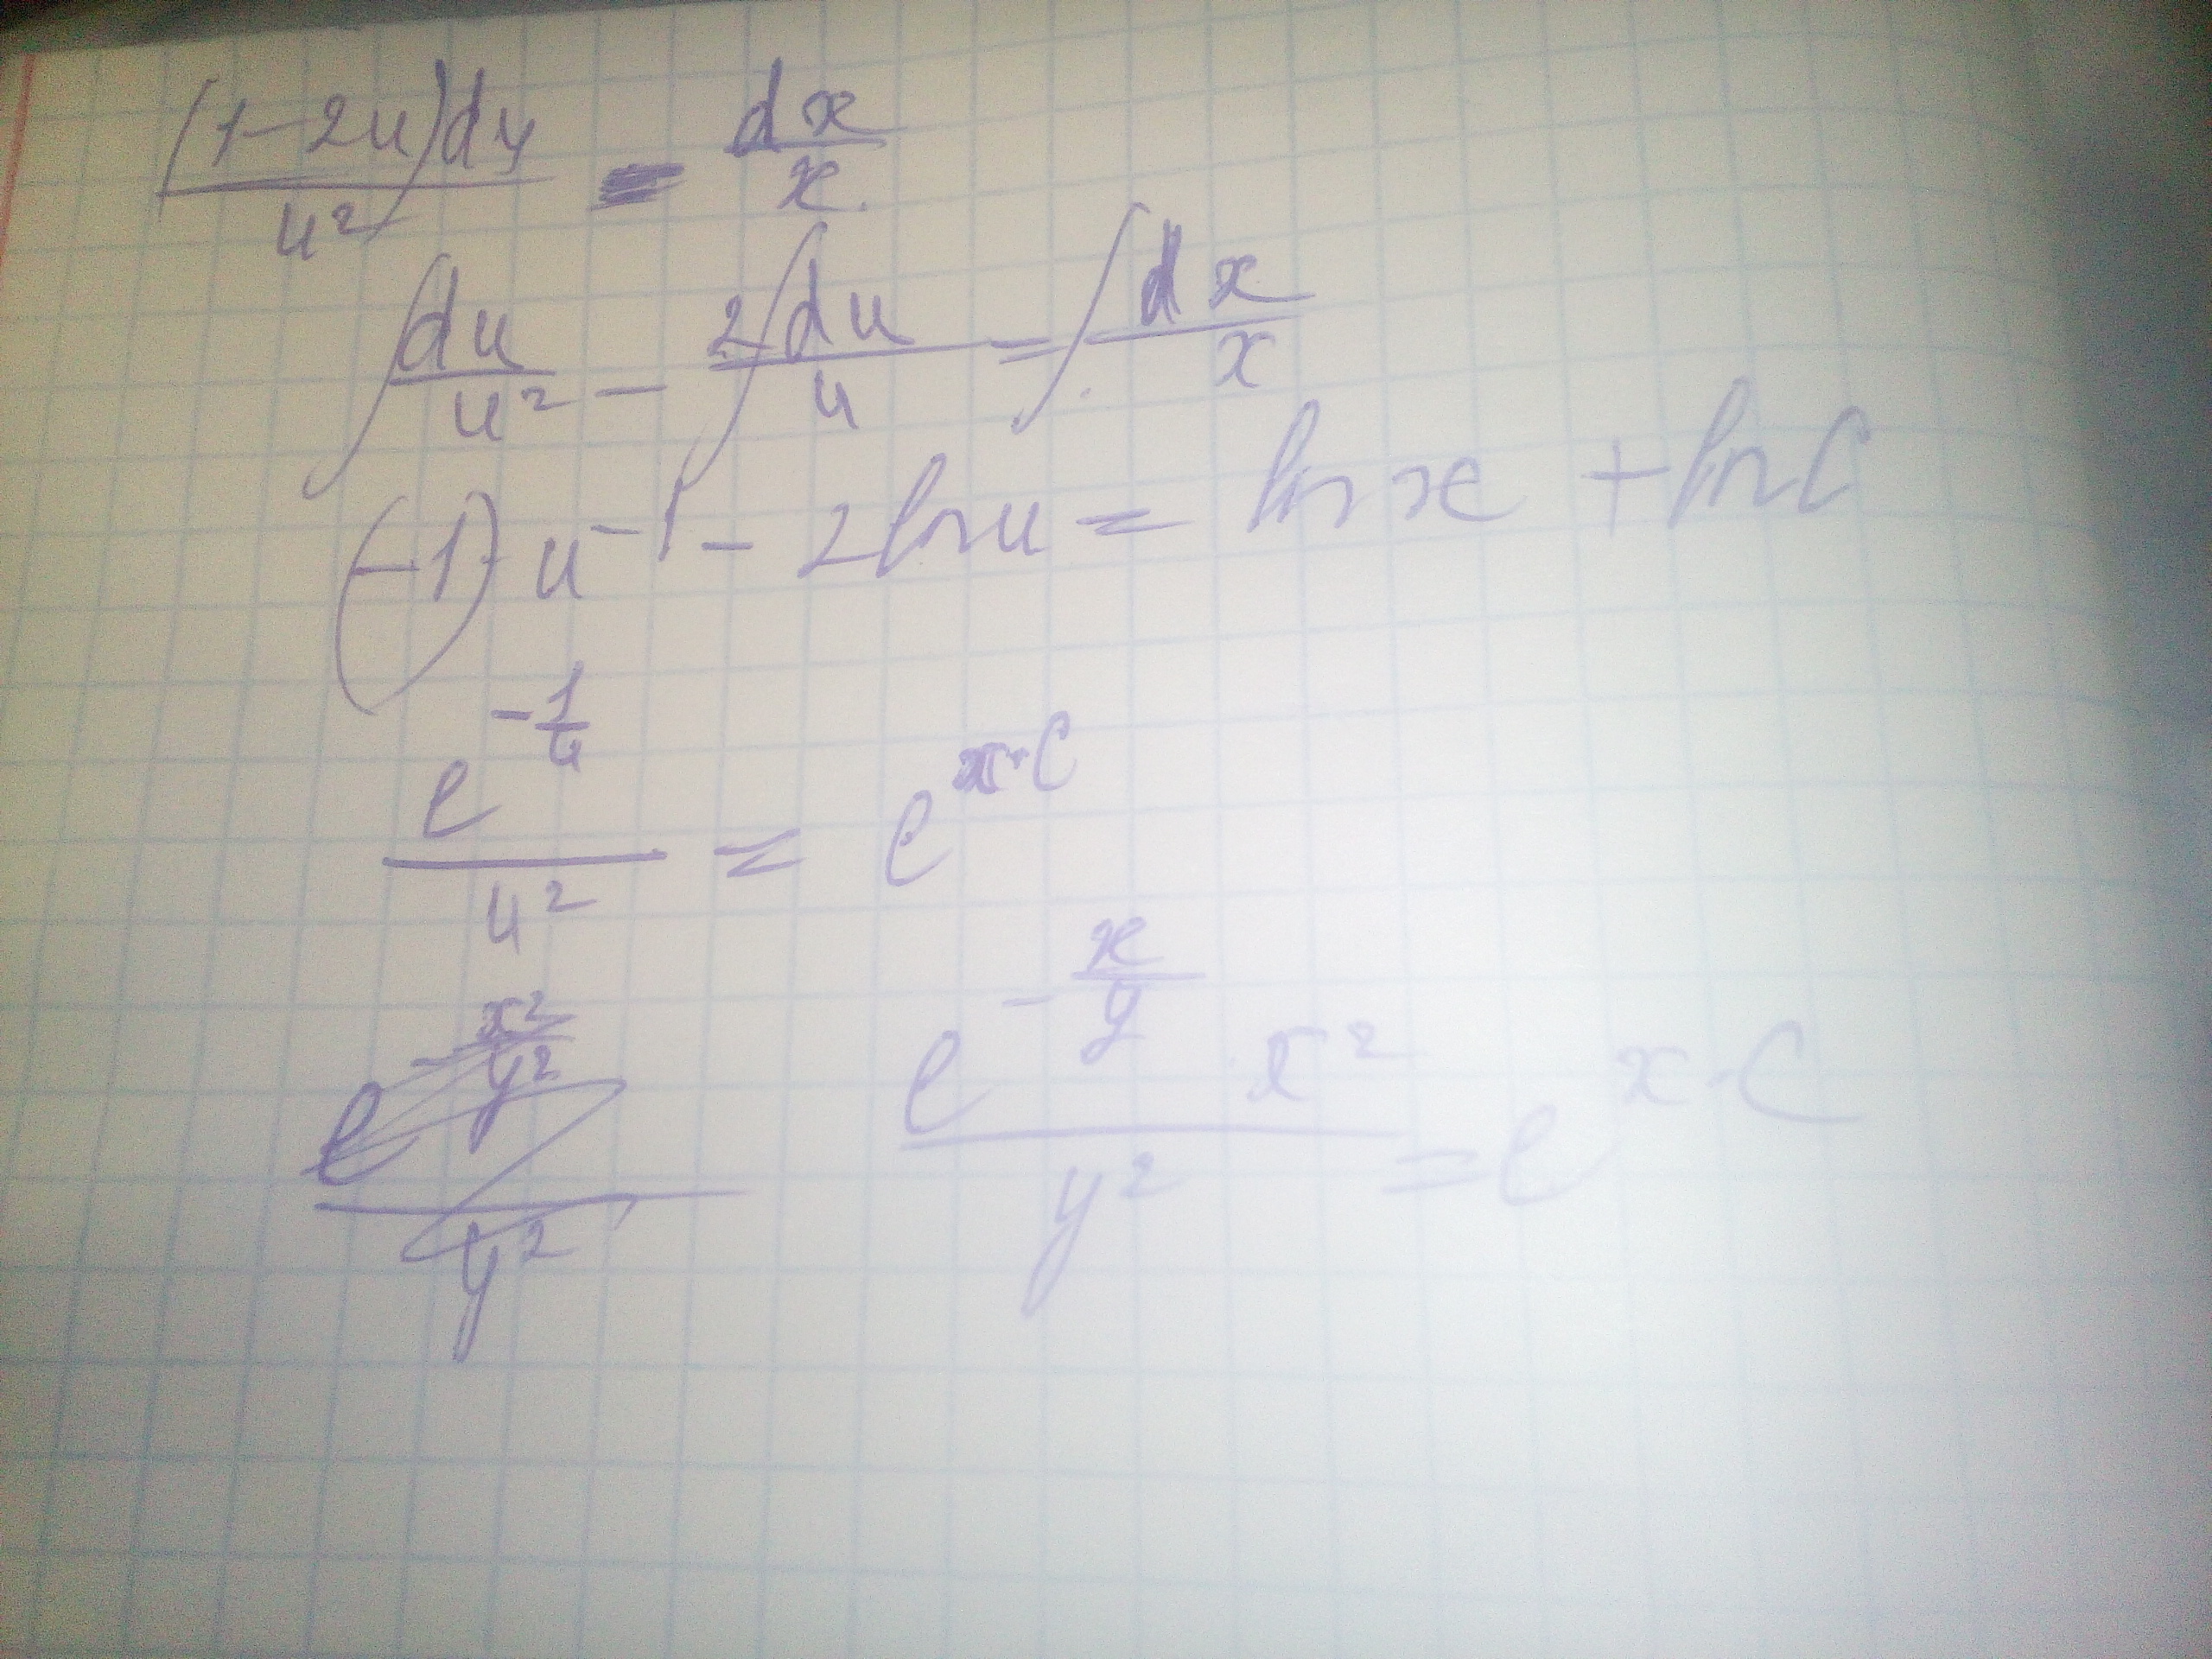 (1-2u)du/u² = dx/x
∫du/u² - 2∫du/u = ∫dx/x
(-1)·u⁻¹ - 2lnu = lnx + lnC
e^(-1/u)/u² = e^(x·C)
e^(-x/y)·x²/y² = e^(x·C)